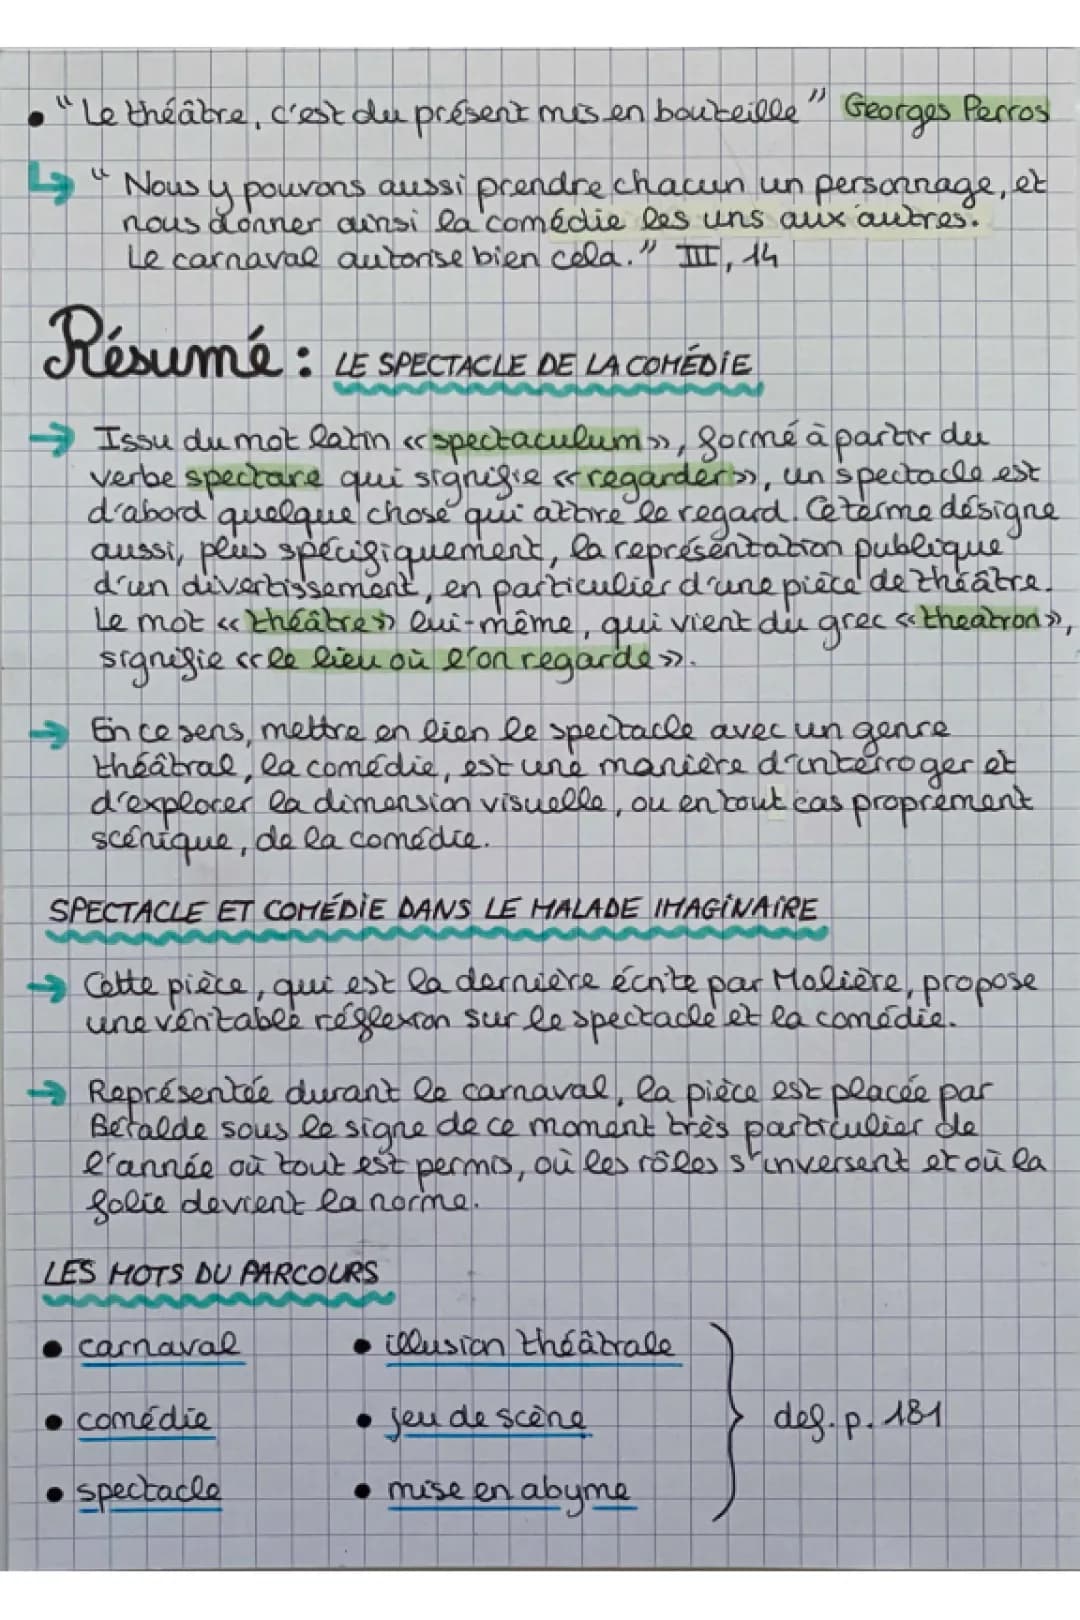 • "Le théâtre, c'est du présent mis en bouteille" Georges Perros
↳ "Nous y pouvons aussi prendre chacun un personnage, et
nous donner ainsi la comédie les uns aux autres.
Le carnaval autorise bien cela." III, 14
Résumé : LE SPECTACLE DE LA COMÉDIE
→ Issu du mot latin «spectaculum», formé à partir du
verbe spectare qui signifie «regarder», un spectacle est
d'abord quelque chose qui attire le regard. Ce terme désigne
aussi, plus spécifiquement, la représentation publique
d'un divertissement, en particulier d'une pièce de théâtre.
Le mot «théâtre» lui-même, qui vient du grec «theatron»,
signifie «le lieu où l'on regarde».
→ En ce sens, mettre en lien le spectacle avec un genre
théâtral, la comédie, est une manière d'interroger et
d'explorer la dimension visuelle, ou en tout cas proprement
scénique, de la comédie.
SPECTACLE ET COMÉDIE DANS LE MALADE IMAGINAIRE
→ Cette pièce, qui est la dernière écrite par Molière, propose
une véritable réflexion sur le spectacle et la comédie.
→ Représentée durant le carnaval, la pièce est placée par
Béralde sous le signe de ce moment très particulier de
l'année où tout est permis, où les rôles s'inversent et où la
folie devient la norme.
LES MOTS DU PARCOURS
• carnaval • illusion théâtrale
• comédie • jeu de scène def. p. 181
• spectacle • mise en abyme